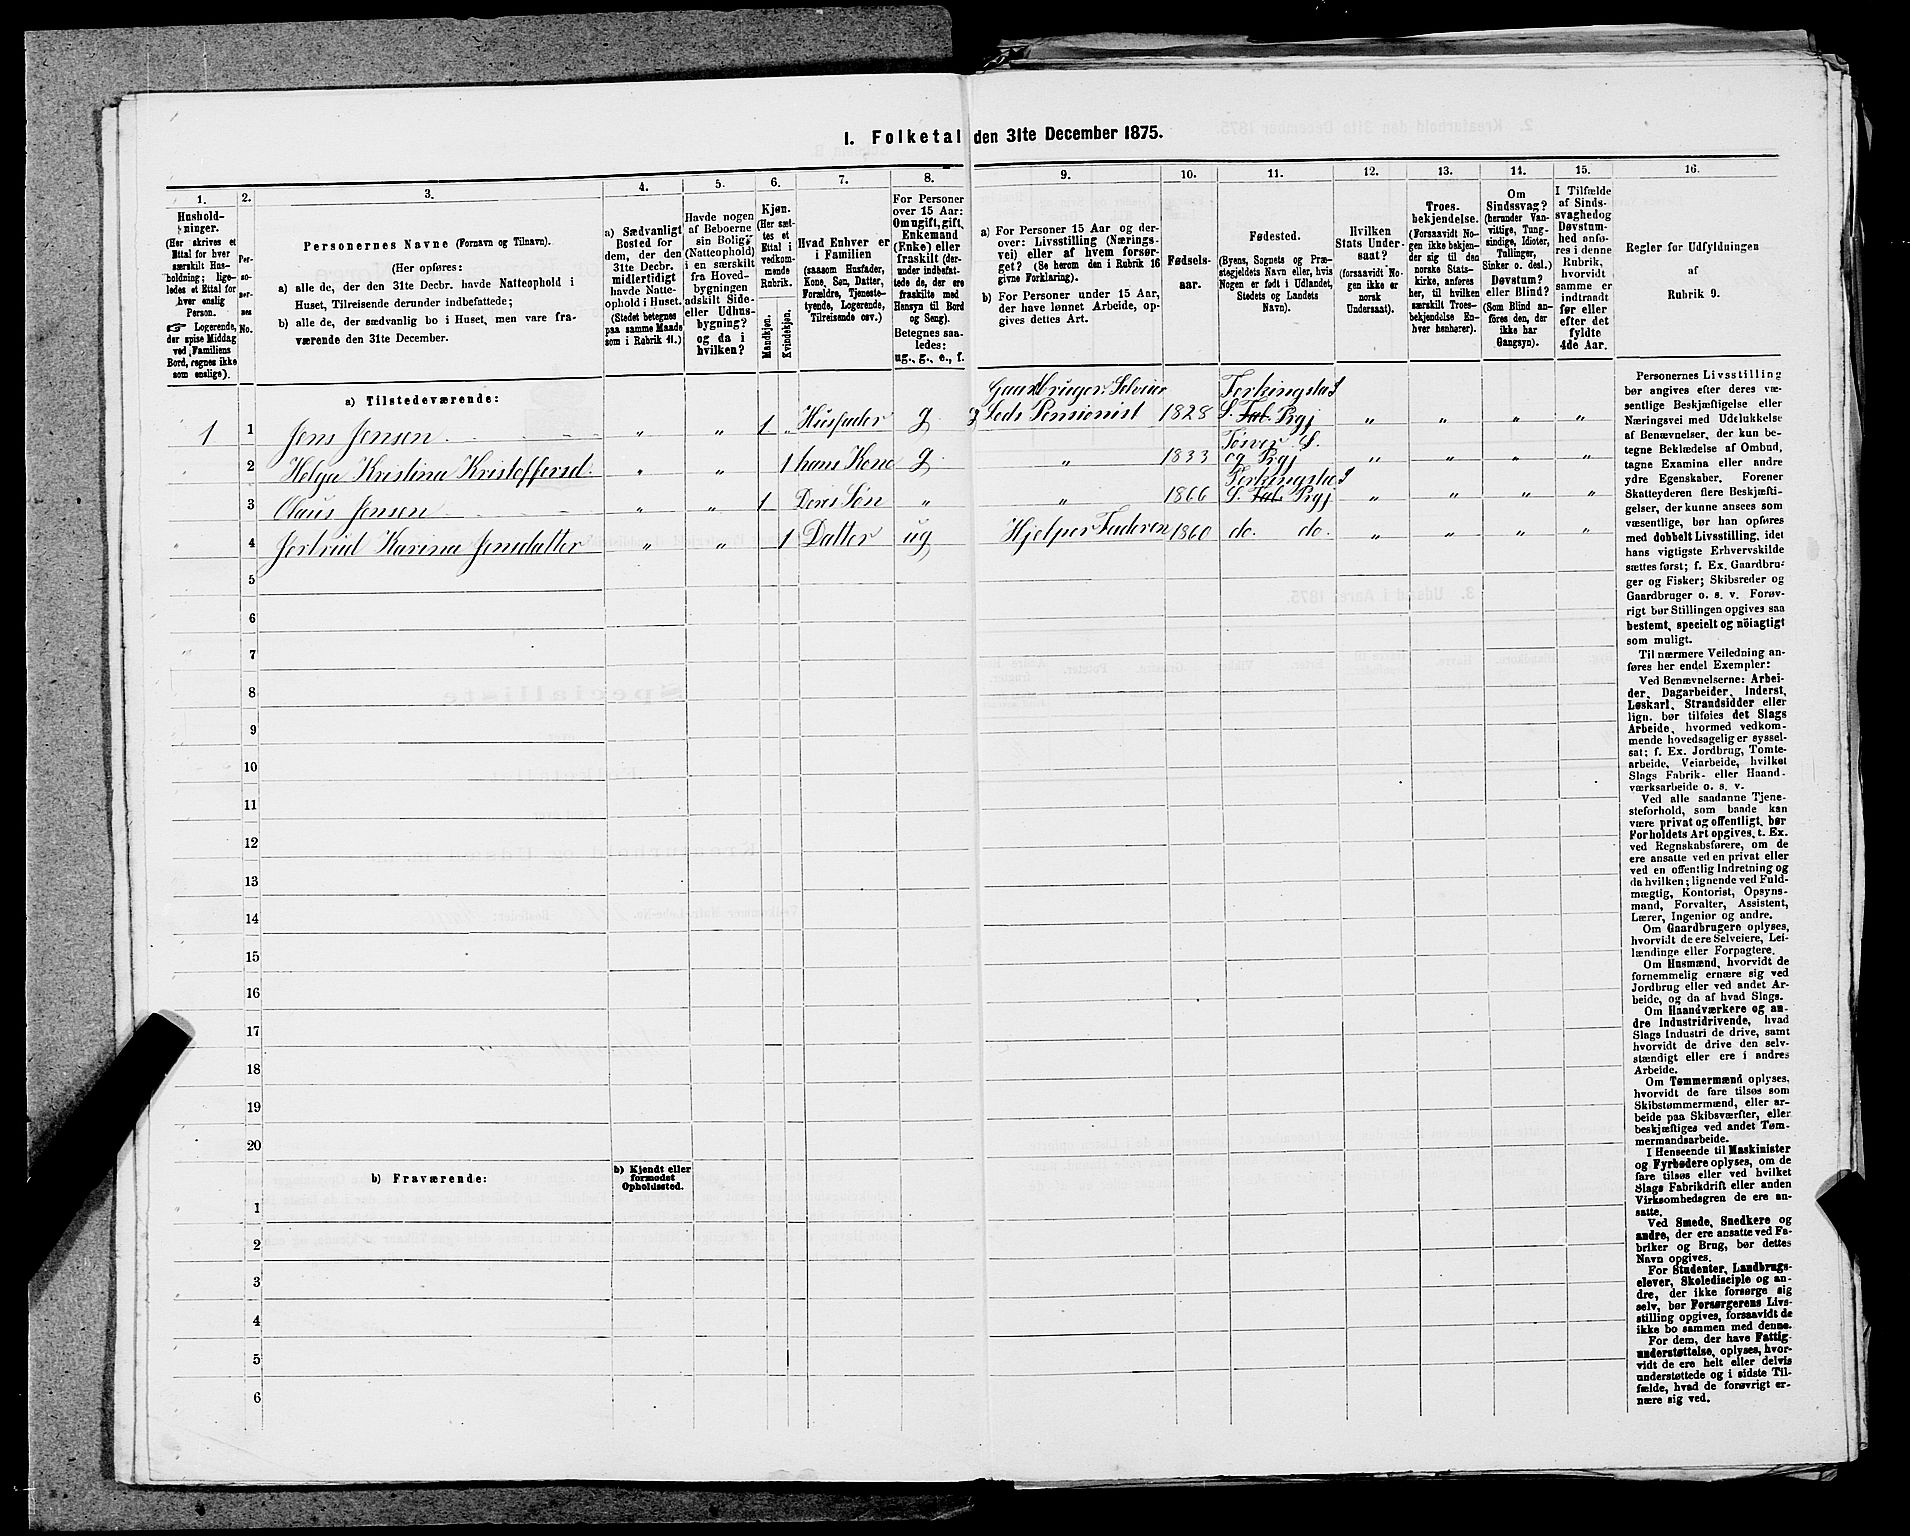 I. Folketal den 31te December 1875.
1. 2. 3. 4. 5. 6. 7. 8. 9. 10. 11. 12. 13. 14. 15. 16.
Hushold-
ninger.
(Her skrives et
Ettal for hver
særskilt Hus-
holdning; lige-
ledes et Ettal for
hver enslig
Person.
☞ Logerende,
der spise Middag
ved Familiens
Bord, regnes ikke
som enslige).
Per-
so-
ner-
nes
No.
Personernes Navne (Fornavn og Tilnavn).
(Her opføres:
a) alle de, der den 31te Decbr. havde Natteophold i
Huset, Tilreisende derunder indbefattede;
b) alle de, der sædvanlig bo i Huset, men vare fra-
værende den 31te December.
a) Sædvanligt
Bosted for
dem, der den
31te Decbr.
midlertidigt
havde Natte-
ophold i Huset.
(Stedet betegnes
paa samme Maade
som i Rubrik 11.)
Havde nogen
af Beboerne
sin Bolig
(Natteophold)
i en særskilt
fra Hoved-
bygningen
adskilt Side-
eller Udhus-
bygning?
og da i
hvilken?
Kjøn.
(Her sæt-
tes et
Ettal i
vedkom-
mende
Rubrik.
Mandkjøn.
Kvindekjøn.
Hvad Enhver er
i Familien
(saasom Husfader,
Kone, Søn, Datter,
Forældre, Tjeneste-
tyende, Logerende,
Tilreisende osv.)
For Personer
over 15 Aar:
Om ugift, gift,
Enkemand
(Enke) eller
fraskilt (der-
under indbefat-
tede de, der ere
fraskilte med
Hensyn til Bord
og Seng).
Betegnes saa-
ledes:
ug., g., e., f.
a) For Personer 15 Aar og der-
over: Livsstilling (Nærings-
vei) eller af hvem forsør-
get? (Se herom den i Rubrik 16
givne Forklaring).
b) For Personer under 15 Aar,
der have lønnet Arbeide, op-
gives dettes Art.
Fødsels-
aar.
Fødested.
(Byens, Sognets og Præ-
stegjeldets Navn eller, hvis
Nogen er født i Udlandet,
Stedets og Landets
Navn).
Hvilken
Stats Under-
saat?
(forsaavidt No-
gen ikke er
norsk
Undersaat).
Troes-
bekjendelse.
(Forsaavidt No-
gen ikke bekjen-
der sig til den
norske Stats-
kirke, anføres
her, til hvilken
særskilt Troes-
bekjendelse En-
hver henhører).
Om
Sindssvag?
(herunder Van-
vittige, Tung-
sindige, Idioter,
Tullinger,
Sinker o. desl.)
Døvstum?
eller Blind?
(Som Blind an-
føres den, der
ikke har
Gangsyn).
I Tilfælde
af Sinds-
svaghed og
Døvstum-
hed anfø-
res i denne
Rubrik,
hvorvidt
samme er
indtraadt
før eller
efter det
fyldte
4de Aar.
Regler for Udfyldningen
af
Rubrik 9.
a) Tilstedeværende:
Gaardbruger Selveier
Torkingstad
1 1 Jens Jensen „ „ 1 „ Husfader g Leds Pensionist 1828 S. Prgj „ „ „ „
Tøsver S.
2 Helga Kristina Kristoffersd. „ „ 1 hans Kone g „ 1833 og Prgj „ „ „ „
Torkingstad
3 Claus Jensen „ „ 1 Deres Søn „ „ 1866 S. Prgj „ „ „ „
4 Jertrud Karina Jensdatter „ „ 1 Datter ug Hjelper Faderen 1860 do. do. „ „ „ „
5
6
7
8
9
10
11
12
13
14
15
16
17
18
19
20
b) Fraværende:
b) Kjendt eller
formodet
Opholdssted.
1
2
3
4
5
6
Personernes Livsstilling
bør angives efter deres væ-
sentlige Beskjæftigelse eller
Næringsvei med Udelukkelse
af Benævnelser, der kun be-
tegne Beklædelse af Ombud,
tagne Examina eller andre
ydre Egenskaber. Forener
Skatteyderen flere Beskjæfti-
gelser, der kunne ansees som
væsentlige, bør han opføres
med dobbelt Livsstilling, idet
hans vigtigste Erhvervskilde
sættes først; f. Ex. Gaardbru-
ger og Fisker; Skibsreder og
Gaardbruger o. s. v. Forøv-
rigt bør Stillingen opgives saa
bestemt, specielt og nöiagtigt
som muligt.
Til nærmere Veiledning an-
føres her endel Exempler:
Ved Benævnelserne: Arbei-
der, Dagarbeider, Inderst,
Løskarl, Strandsidder eller
lign. bør tilføies det Slags
Arbeide, hvormed vedkom-
mende hovedsagelig er syssel-
sat; f. Ex. Jordbrug, Tomte-
arbeide, Veiarbeide, hvilket
Slags Fabrik- eller Haand-
værksarbeide o. s. v.
Ved alle saadanne Tjene-
steforhold, som baade kan
være privat og offentligt, bør
Forholdets Art opgives, t. Ex.
ved Regnskabsførere, om de
ere ansatte ved en privat eller
ved en offentlig Indretning og
da hvilken; lignende ved Fuld-
mægtig, Kontorist, Opsyns-
mand, Forvalter, Assistent,
Lærer, Ingeniør og andre.
Om Gaardbrugere oplyses,
hvorvidt de ere Selveiere, Lei-
lændinge eller Forpagtere.
Om Husmænd, hvorvidt de
fornemmelig ernære sig ved
Jordbrug eller ved andet Ar-
beide, og da af hvad Slags.
Om Haandværkere og an-
dre Industridrivende, hvad
Slags Industri de drive, samt
hvorvidt de drive den selv-
stændigt eller ere i andres
Arbeide.
Om Tømmermænd oplyses,
hvorvidt de fare tilsøs som
Skibstømmermænd, eller ar-
beide paa Skibsværfter, eller
beskjæftiges ved andet Tøm-
mermandsarbeide.
I Henseende til Maskinister
og Fyrbødere oplyses, om de
fare tilsøs eller ved hvilket
Slags Fabrikdrift eller anden
Virksomhedsgren de ere an-
satte.
Ved Smede, Snedkere og
andre, der ere ansatte ved Fa-
briker og Brug, bør dettes
Navn opgives.
For Studenter, Landbrugs-
elever, Skoledisciple og an-
dre, der ikke forsørge sig
selv, bør Forsørgerens Livs-
stilling opgives, forsaavidt de
ikke bo sammen med denne.
For dem, der have Fattig-
understøttelse, oplyses, hvor-
vidt de ere helt eller delvis
understøttede og i sidste Til-
fælde, hvad de forøvrigt er-
nære sig ved.